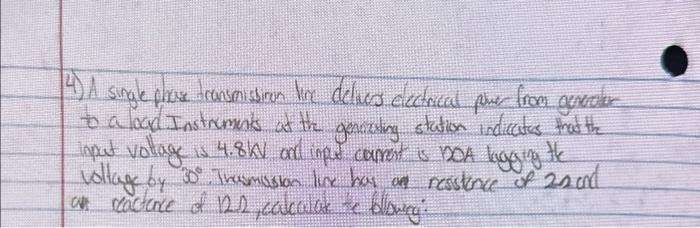 4) A single phase transmission line delivers electrical power from generator
to a load Instruments at the generating station indicates that the
input voltage is 4.8kV and input current is 120A lagging the
voltage by 30° Transmission line has an resistence of 2Ω and
an reactance of 12Ω, calculate the following: